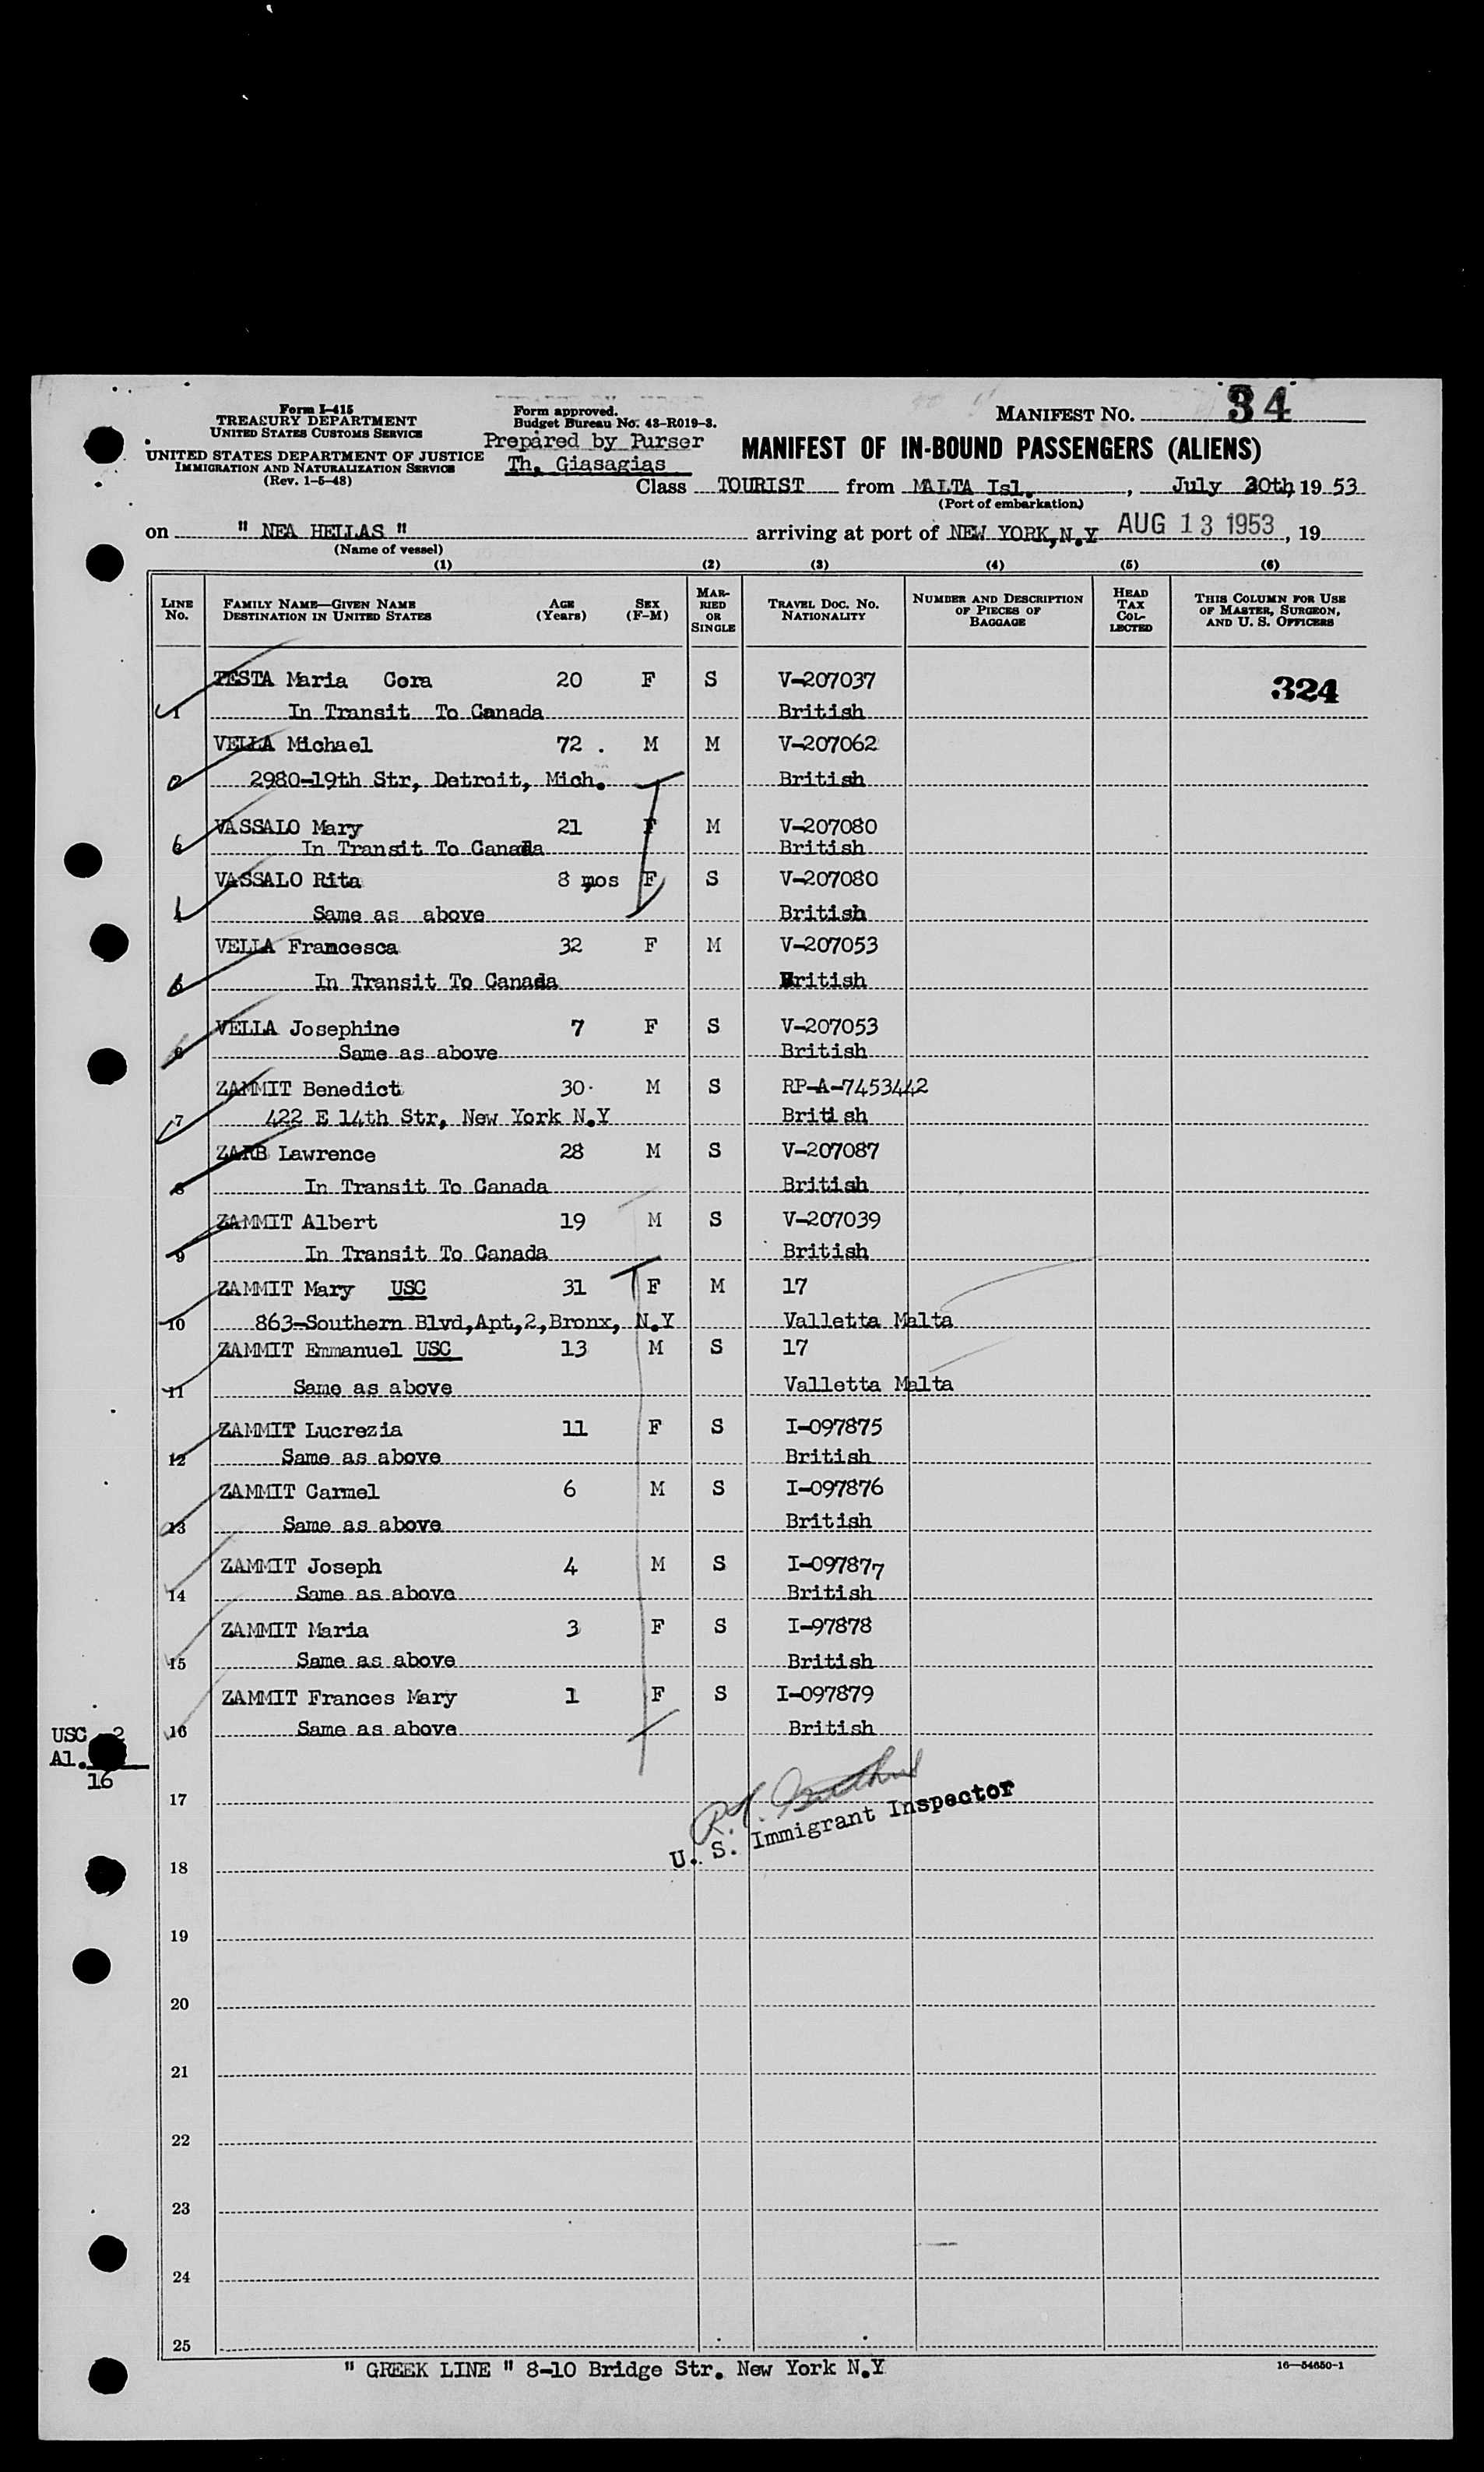 Form I-415
TREASURY DEPARTMENT
UNITED STATES CUSTOMS SERVICE
UNITED STATES DEPARTMENT OF JUSTICE
IMMIGRATION AND NATURALIZATION SERVICE
(Rev. 1-5-48)
Form approved.
Budget Bureau No. 43-R019-3.
Prepared by Purser
Th. Giasagias
MANIFEST NO. 34
MANIFEST OF IN-BOUND PASSENGERS (ALIENS)
Class TOURIST from MALTA Isl. , July 30th, 19 53
(Port of embarkation)
on " NEA HELLAS " arriving at port of NEW YORK, N.Y AUG 13 1953 , 19
(Name of vessel)
(1) (2) (3) (4) (5) (6)
LINE No. FAMILY NAME—GIVEN NAME DESTINATION IN UNITED STATES AGE (Years) SEX (F-M) MARRIED OR SINGLE TRAVEL DOC. NO. NATIONALITY NUMBER AND DESCRIPTION OF PIECES OF BAGGAGE HEAD TAX COLLECTED THIS COLUMN FOR USE OF MASTER, SURGEON, AND U. S. OFFICERS
TESTA Maria Cora 20 F S V-207037 324
1 In Transit To Canada British
VELLA Michael 72 . M M V-207062
2 2980-19th Str, Detroit, Mich. British
VASSALO Mary 21 F M V-207080
3 In Transit To Canada British
VASSALO Rita 8 mos F S V-207080
4 Same as above British
VELLA Francesca 32 F M V-207053
5 In Transit To Canada British
VELLA Josephine 7 F S V-207053
6 Same as above British
ZAMMIT Benedict 30 M S RP-A-7453442
7 422 E 14th Str, New York N.Y British
ZARB Lawrence 28 M S V-207087
8 In Transit To Canada British
ZAMMIT Albert 19 M S V-207039
9 In Transit To Canada British
ZAMMIT Mary USC 31 F M 17
10 863-Southern Blvd,Apt,2,Bronx, N.Y Valletta Malta
ZAMMIT Emmanuel USC 13 M S 17
11 Same as above Valletta Malta
ZAMMIT Lucrezia 11 F S I-097875
12 Same as above British
ZAMMIT Carmel 6 M S I-097876
13 Same as above British
ZAMMIT Joseph 4 M S I-097877
14 Same as above British
ZAMMIT Maria 3 F S I-97878
15 Same as above British
ZAMMIT Frances Mary 1 F S I-097879
16 Same as above British
USC 2
Al.
16
17
U. S. Immigrant Inspector
18
19
20
21
22
23
24
25
" GREEK LINE " 8-10 Bridge Str. New York N.Y
16—54650-1